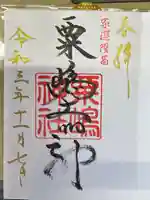 奉拝
開運
粟嶋神社
粟嶋神社
令和三年十一月七日